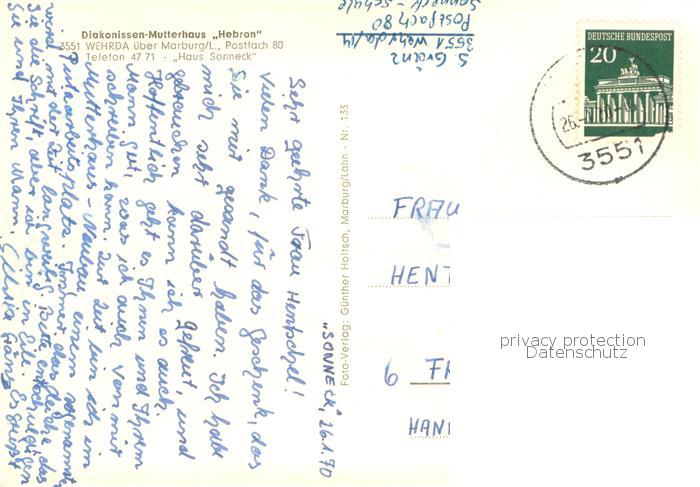 Diakonissen-Mutterhaus „Hebron"
3551 WEHRDA über Marburg/L., Postfach 80
Telefon 47 71 - „Haus Sonneck"
S. Gränz
3551 Wehrda/M
Postfach 80
Sonneck-schule
DEUTSCHE BUNDESPOST
20
3551
Foto-Verlag: Günther Holtsch, Marburg/Lahn - Nr. 135
„SONNECK", 26.1.70
Sehr geehrte Frau Hentschel!
Vielen Dank, für das Geschenk, das
Sie mir gesandt haben. Ich habe
mich sehr darüber gefreut, und
gebrauchen kann ich es auch.
Hoffentlich geht es Ihnen und Ihrem
Mann gut, was ich auch von mir
schreiben kann. Zur Zeit bin ich im
Mutterhaus-Neubau einen sogenannten
Putzarbeitsplatz. Immer das gleiche, das
wird mit der Zeit langweilig. Bitte entschuldigen
Sie die Schrift, aber ich bin in Eile. Es grüßt
Sie und Ihren Mann,
FRAU
HENT
6 FR
HAN
privacy protection
Datenschutz